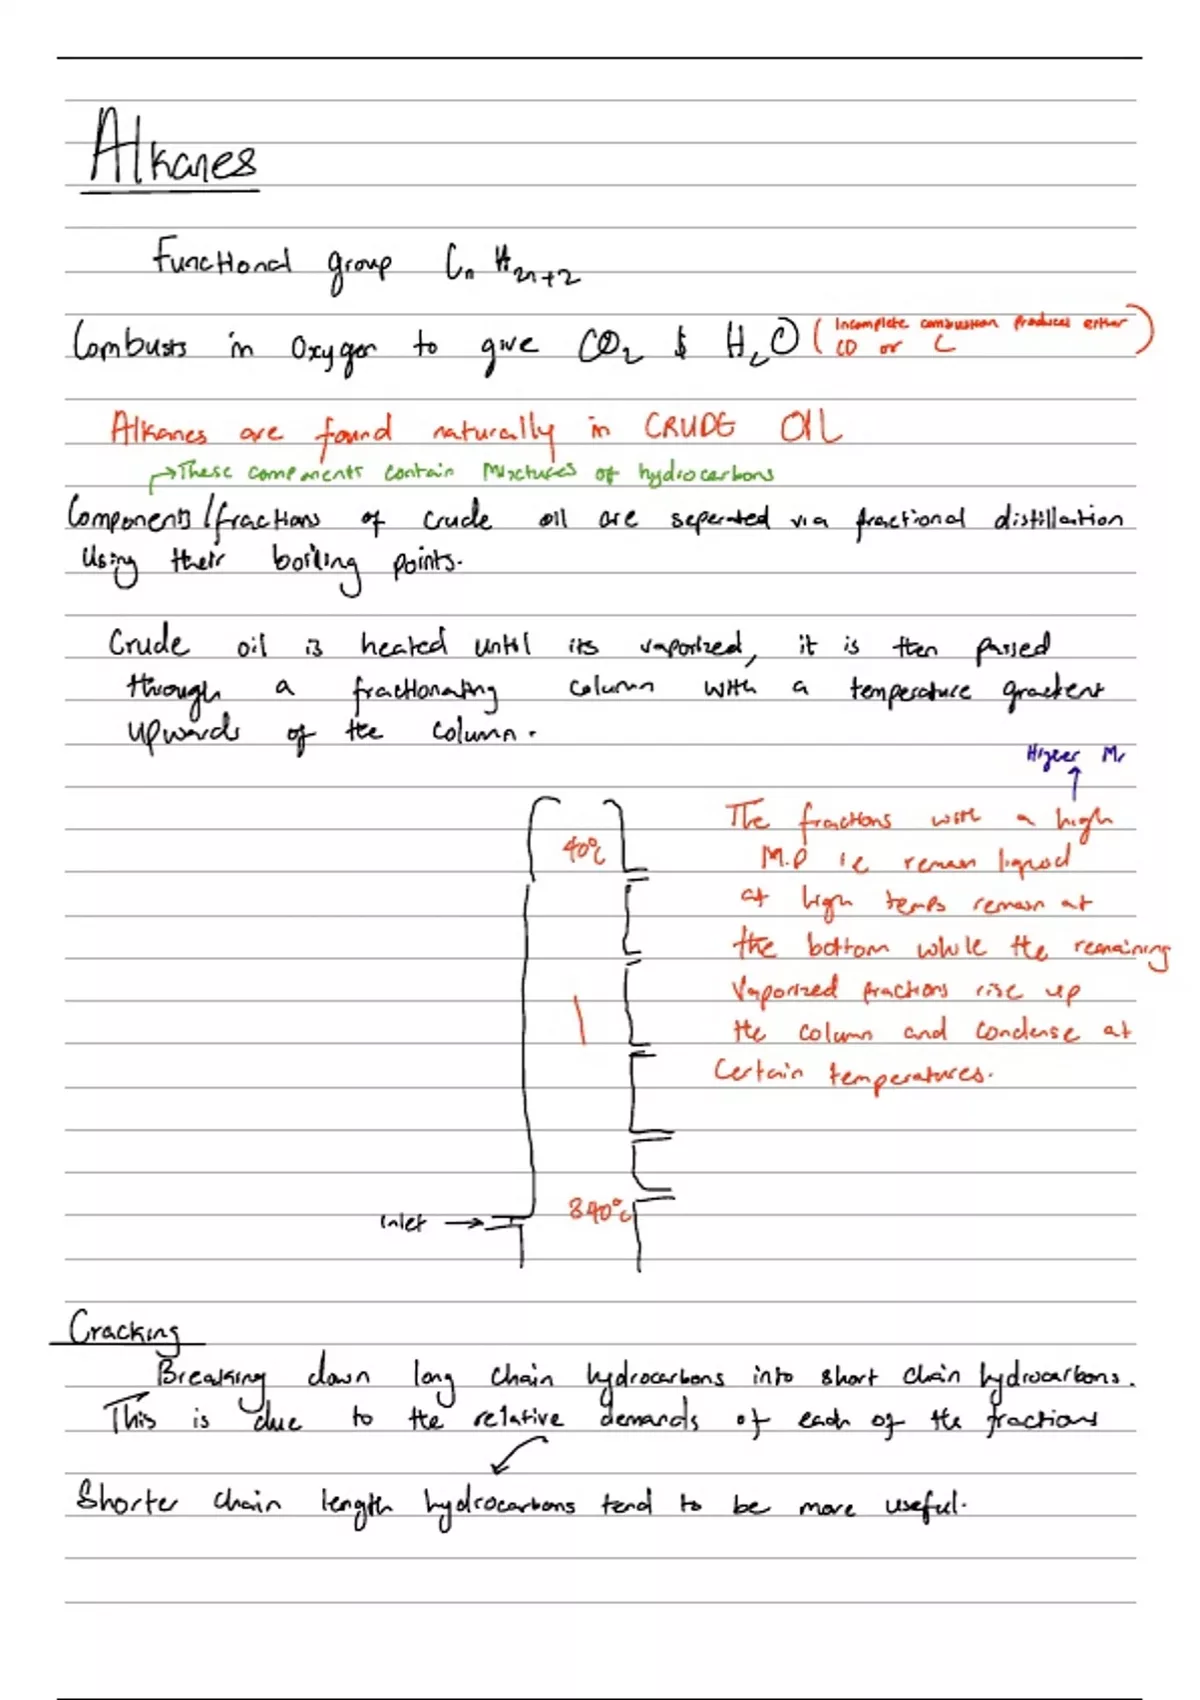 Alkanes
Functional group CnH2n+2
Combusts in Oxygen to give CO2 & H2O (Incomplete combustion produces either
CO or C)
Alkanes are found naturally in CRUDE OIL
→These components contain mixtures of hydrocarbons
Components/fractions of crude oil are seperated via fractional distillation
Using their boiling points.
Crude oil is heated until its vaporized, it is then passed
through a fractionating column with a temperature gradient
upwards of the column.
Higher Mr
The fractions with a high
M.P ie remain liquid
at high temps remain at
the bottom while the remaining
Vaporized fractions rise up
the column and condense at
certain temperatures.
40°C
340°C
inlet →
Cracking
Breaking down long chain hydrocarbons into short chain hydrocarbons.
This is due to the relative demands of each of the fractions
Shorter chain length hydrocarbons tend to be more useful.